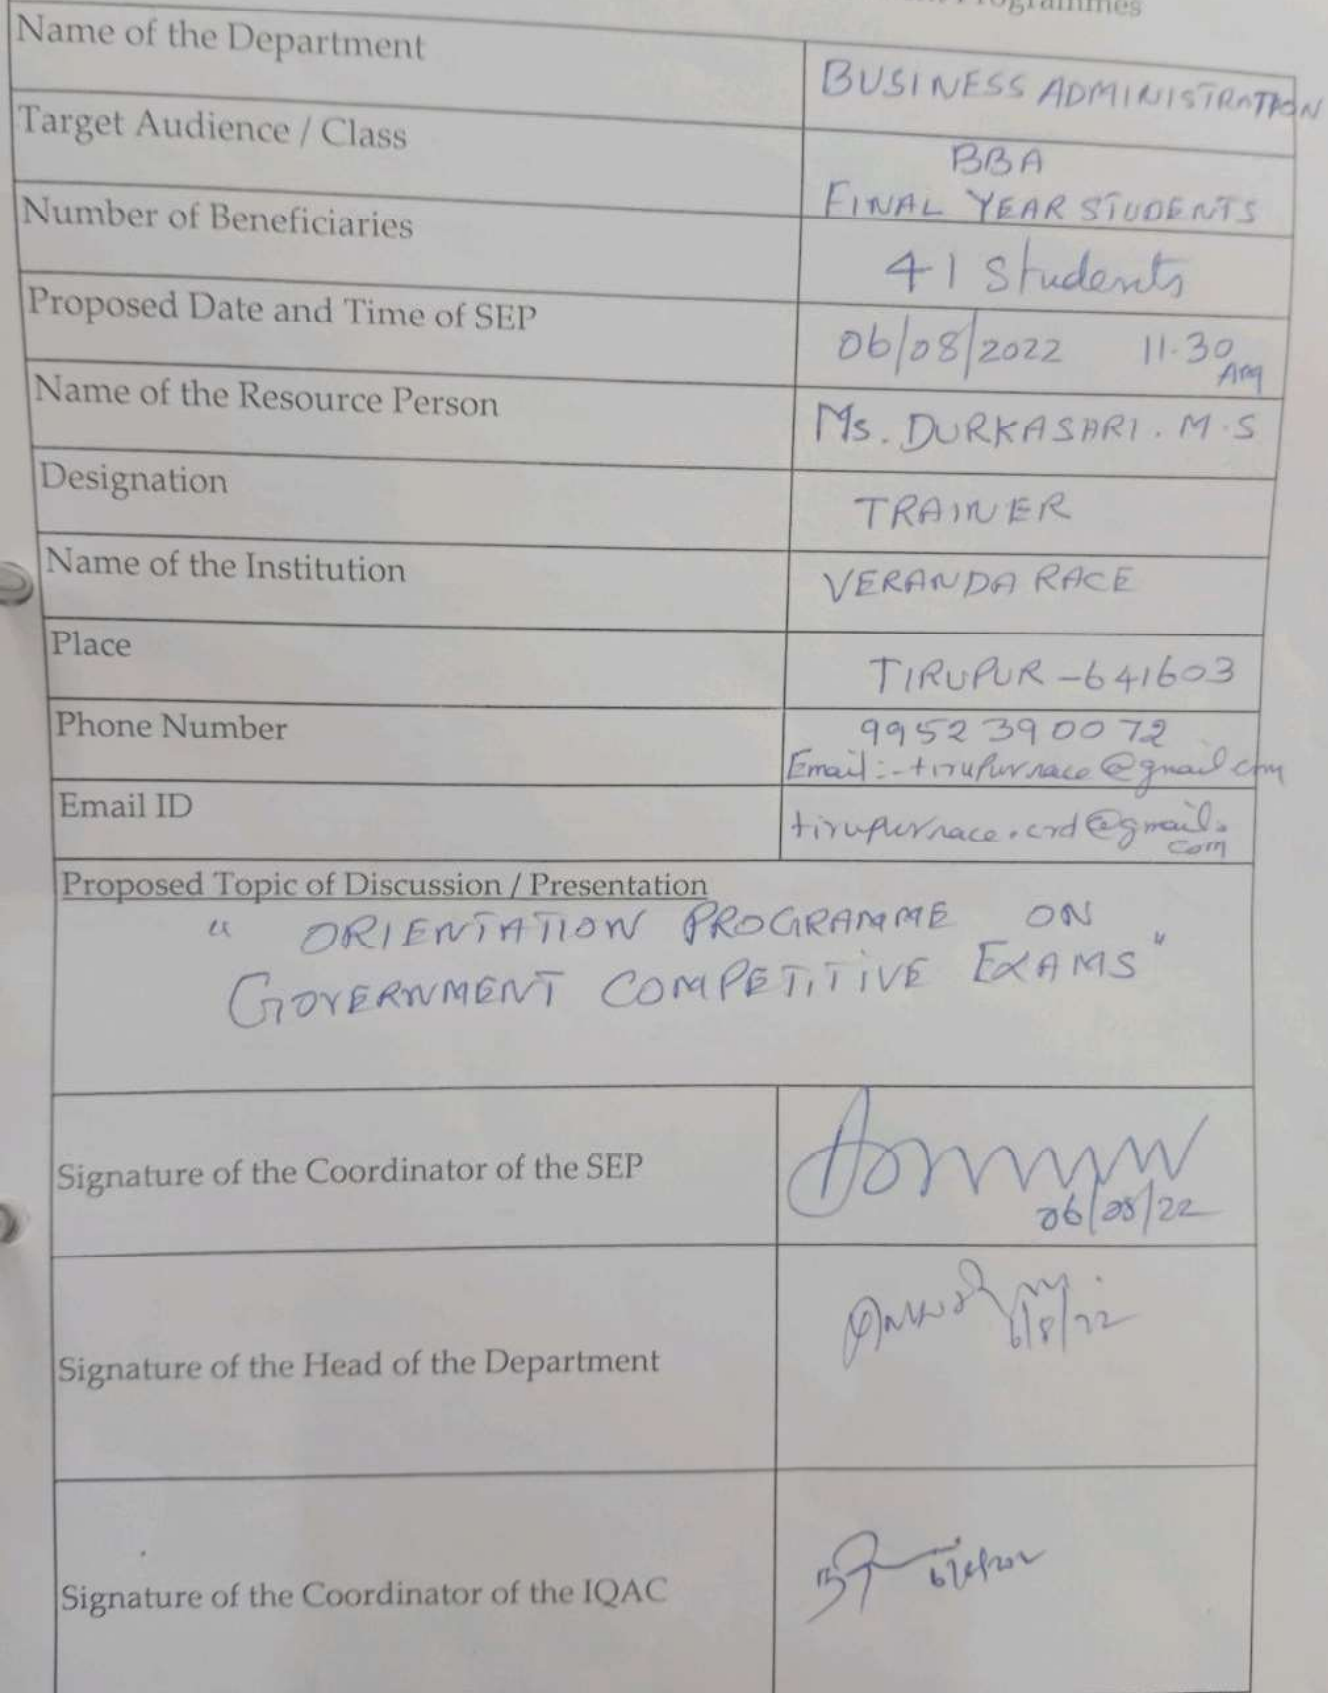 Programmes
Name of the Department
BUSINESS ADMINISTRATION
Target Audience / Class
BBA
FINAL YEAR STUDENTS
Number of Beneficiaries
41 Students
Proposed Date and Time of SEP
06/08/2022 11.30
Am
Name of the Resource Person
Ms. DURKASHRI . M.S
Designation
TRAINER
Name of the Institution
VERANDA RACE
Place
TIRUPUR - 641603
Phone Number
99523 90072
Email:- tirupurrace@gmail.com
Email ID
tirupurrace.crd@gmail.
com
Proposed Topic of Discussion / Presentation
" ORIENTATION PROGRAMME ON
GOVERNMENT COMPETITIVE EXAMS"
Signature of the Coordinator of the SEP
06/08/22
Signature of the Head of the Department
6/8/22
Signature of the Coordinator of the IQAC